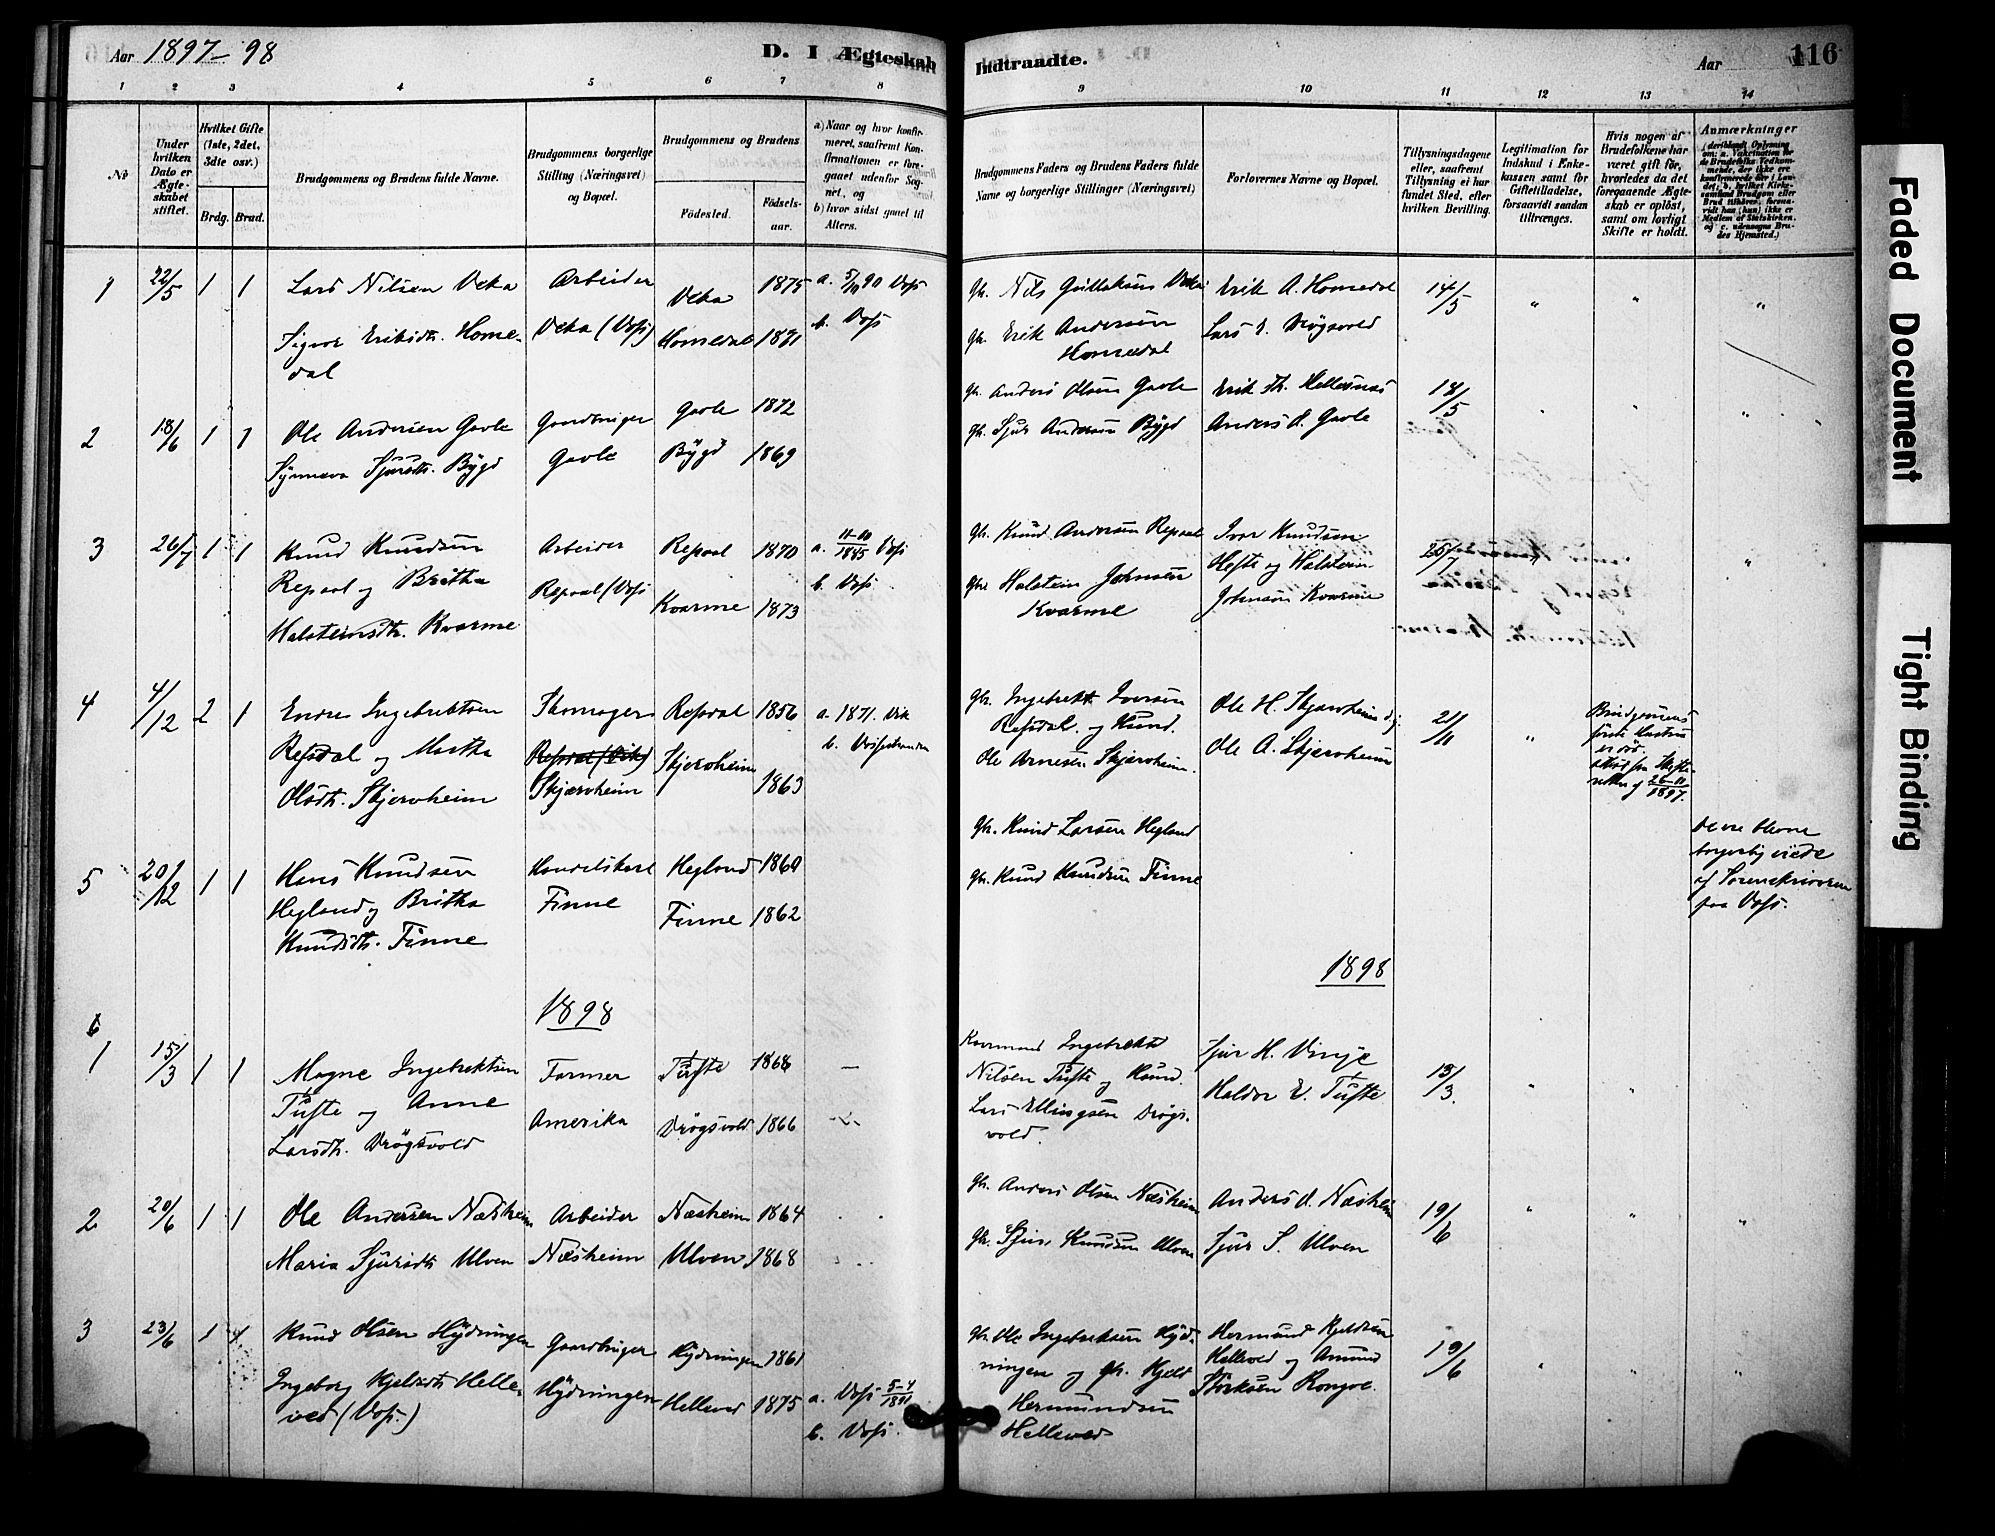 Aar 1897-98
D. I Ægteskab
Indtraadte.
Aar
116
1 2 3 4 5 6 7 8 9 10 11 12 13 14
No
Under hvilken Dato er Ægteskabet stiftet.
Hvilket Gifte (1ste, 2det, 3die osv.)
Brdg. Brud.
Brudgommens og Brudens fulde Navne.
Brudgommens borgerlige Stilling (Næringsvei) og Bopæl.
Brudgommens og Brudens
Fødested.
Fødselsaar.
a) Naar og hvor konfirmeret, saafremt Konfirmationen er foregaaet udenfor Sognet, og
b) hvor sidst gaaet til Alters.
Brudgommens Faders og Brudens Faders fulde Navne og borgerlige Stillinger (Næringsvei)
Forlovernes Navne og Bopæl.
Tillysningsdagene eller, saafremt Tillysning ei har fundet Sted, efter hvilken Bevilling.
Legitimation for Indskud i Enkekassen samt for Giftetilladelse, forsaavidt saadan tiltrænges.
Hvis nogen af Brudefolkene har været gift før, hvorledes da det foregaaende Ægteskab er opløst, samt om lovligt Skifte er holdt.
Anmærkninger
1 22/5 1 1 Lars Nilsen Veka Arbeider Veka 1875 a. 5/10 90 Voss
Gh. Nils Gullaksen Veka Erik A. Homedal 14/5
Signe Eriksdtr. Homedal Veka (Voss) Homedal 1871 b. Voss
Gh. Erik Andersen Homedal Lars E. Drøgsvold
2 18/6 1 1 Ole Andersen Gavle Gaardbruger Gavle 1872
Gh. Anders Olsen Gavle Erik Th. Hellesnæs 18/5
Synneva Sjursdtr. Bygd Gavle Bygd 1869
Gh. Sjur Andersen Bygd Anders O. Gavle
3 26/7 1 1 Knud Knudsen Repaal og Britha Halsteinsdtr. Kvarme
Arbeider Repaal (Voss Repaal 1870 Kvarme 1873 a. 11-10 1885 Voss b. Voss
Gh. Knud Andersen Repaal Ivar Knudsen
Gh. Halstein Johnsen Kvarme Hefte og Halstein Johnsen Kvarme 25/7
4 4/12 2 1 Endre Ingebrektsen Refsdal og Martha Olsdtr. Skjerveheim
Skomager Refsdal (Vik) Skjerveheim Refsdal 1856 Skjerveheim 1863 a. 1871. Vik b. Vossestranden
Gh. Ingebrekt Iversen Refsdal og Kaarmd. Ole Arnesen Skjerveheim.
Ole H. Skjerveheim og Ole A. Skjerveheim 21/11
Brudgommens første Hustru er død. Attest fra Skifteretten af 26-11 1897.
5 20/12 1 1 Hans Knudsen Hegland og Britha Knudsdtr. Finne
Handelskarl Finne Hegland 1860 Finne 1862
Gh. Knud Larsen Hegland
Gh. Knud Knudsen Finne
Disse bleve borgerlig viede af Sorenskriveren paa Voss.
1898
1898
1 15/3 1 1 Magne Ingebrektsen Tufte og Anne Larsdtr. Drøgsvold
Farmer Amerika Tufte 1868 Drøgsvold 1866
Kaarmand Ingebrekt Nilsen Tufte og Kaarmd. Lars Ellingsen Drøgsvold.
Sjur H. Vinje Haldor E. Tufte 13/3.
2 20/6 1 1 Ole Andersen Næsheim Arbeider Næsheim 1864
Gh. Anders Olsen Næsheim Anders O. Næsheim 19/6
Maria Sjursdtr Ulven Næsheim Ulven 1868
Gh. Sjur Knudsen Ulven Sjur S. Ulven
3 23/6 1 1 Knud Olsen Hydningen Gaardbruger Hydningen 1861
Ingeborg Kjeldsdtr Helleved (Voss.) Hydningen Helleved 1875 a. Voss 5-4 1891 b. Voss.
Gh. Ole Ingebrektsen Hydningen og Gh. Kjeld Hermundsen Helleved
Hermund Kjeldsen Helleved og Amund Storksen Rongve. 19/6
Faded Document
Tight Binding